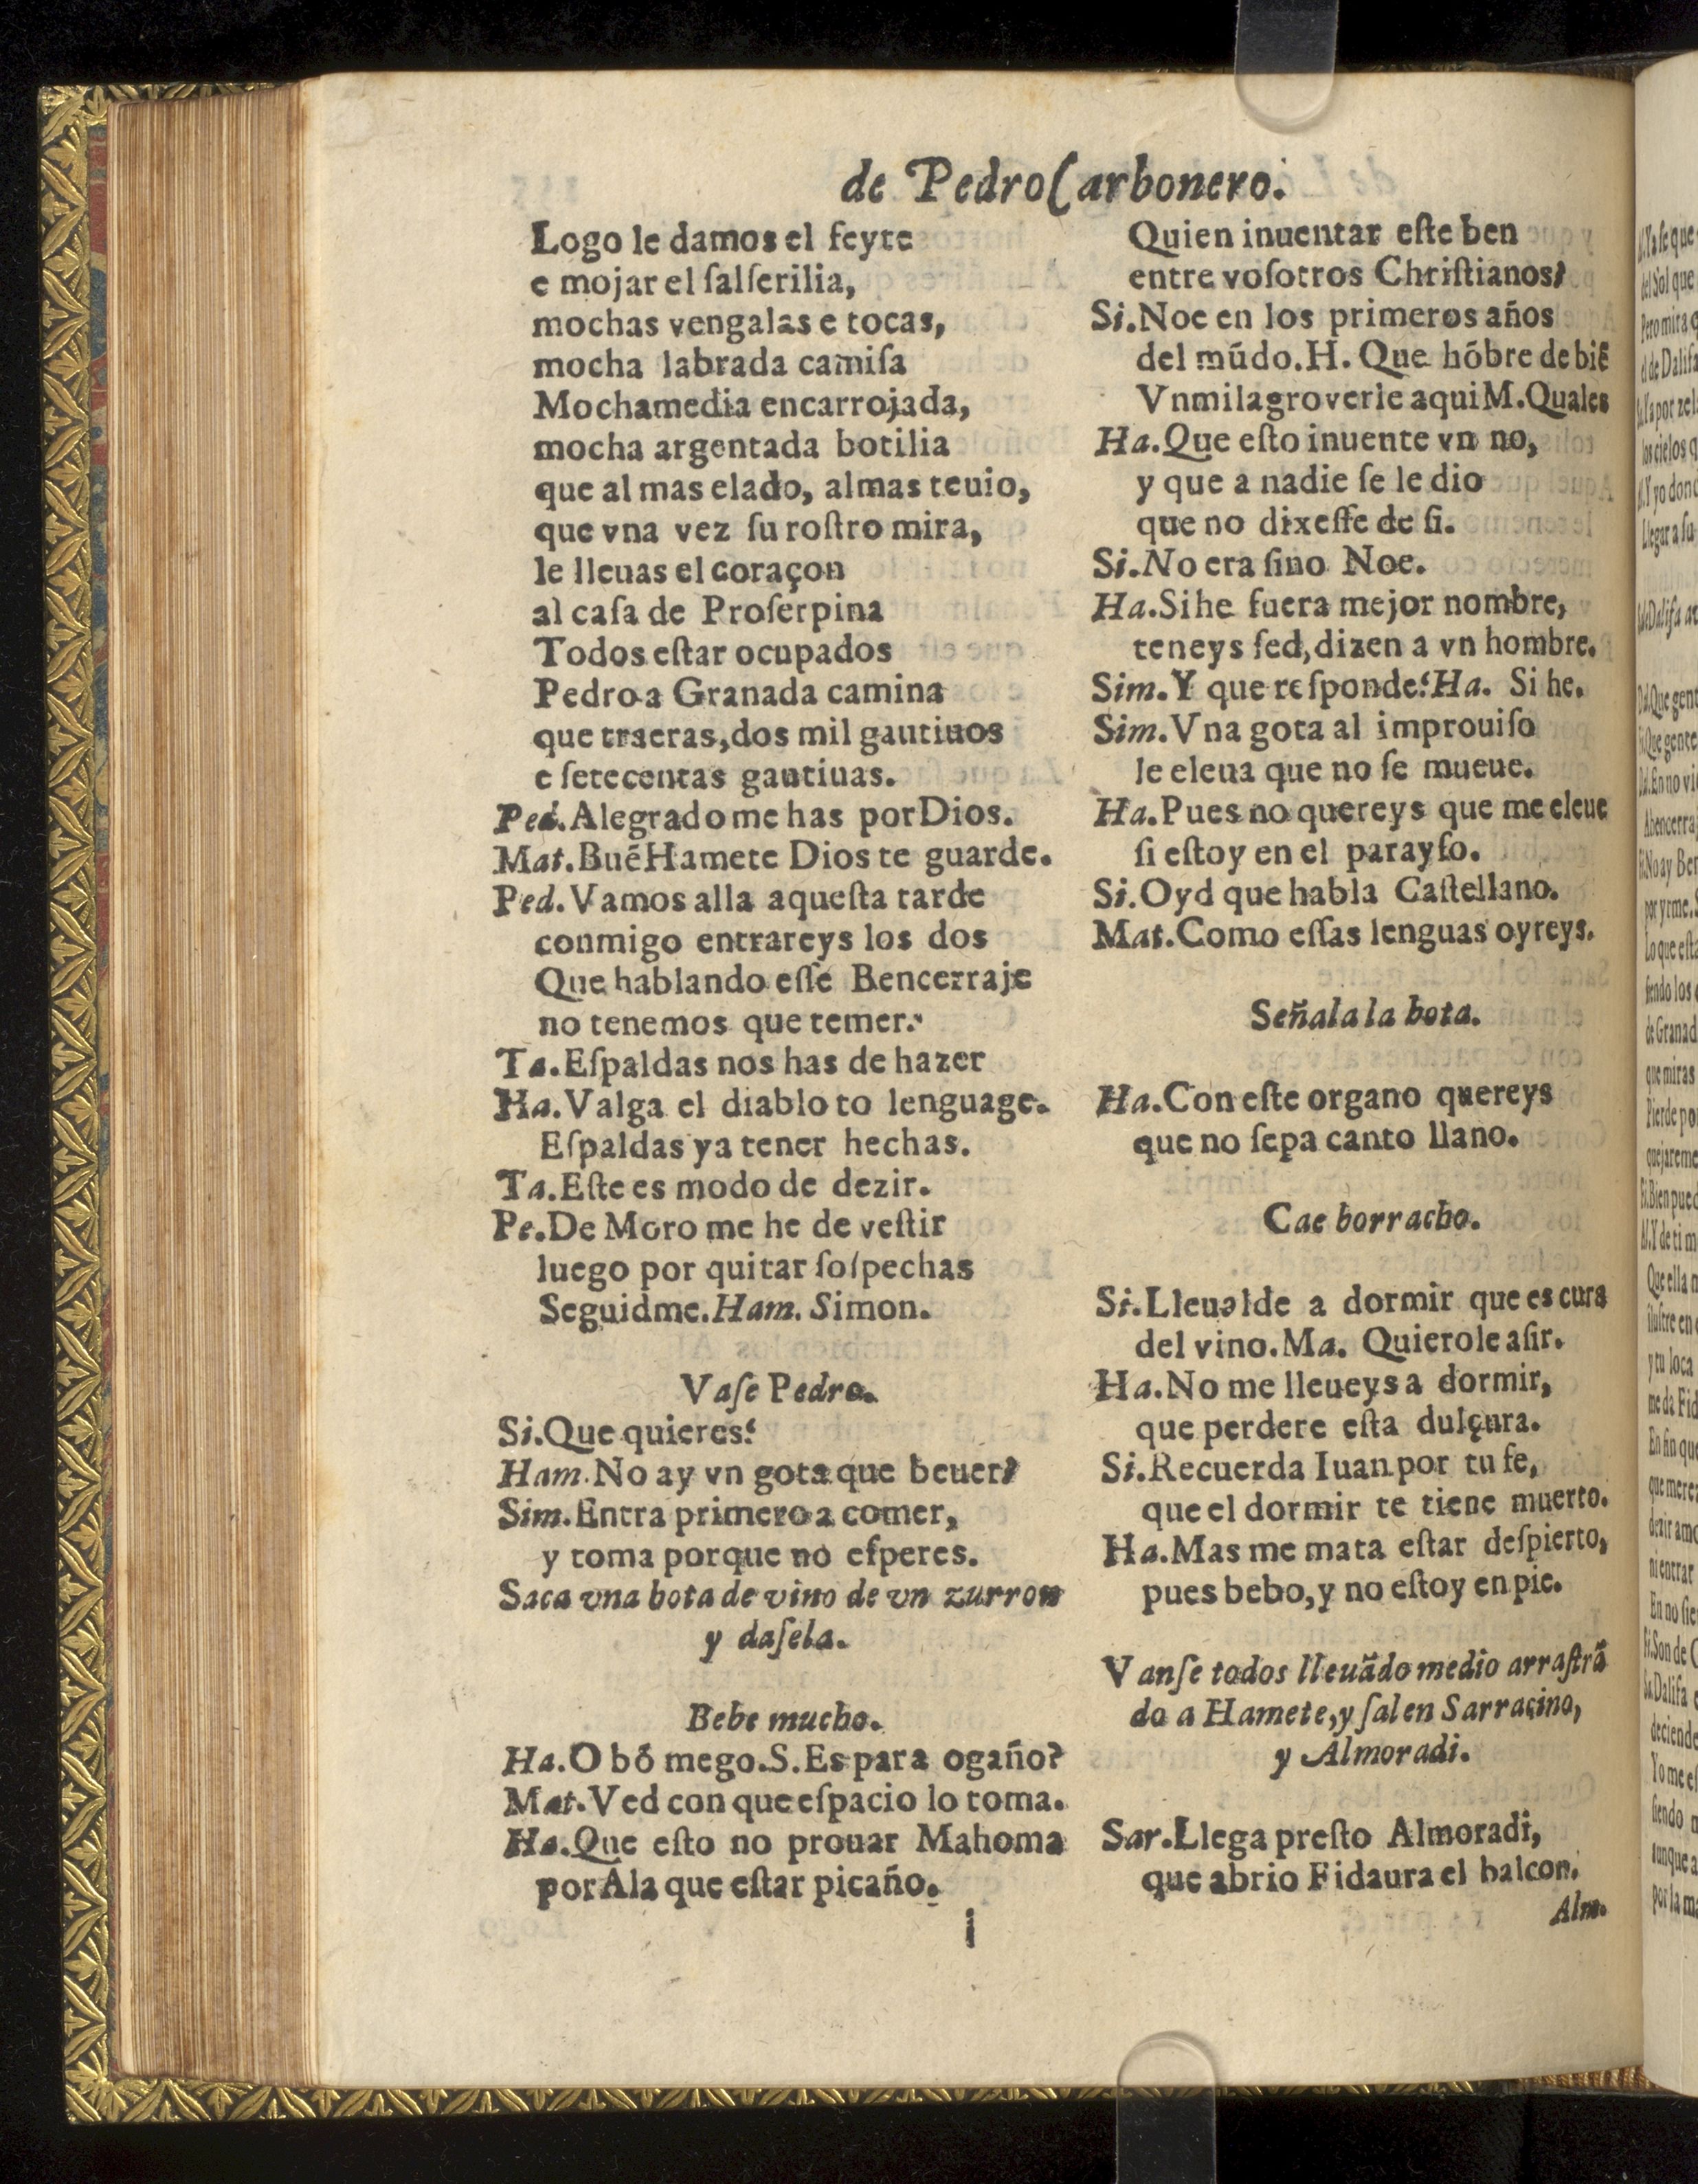 de Pedro Carbonero.
Logo le damos el feyte
e mojar el ſalſerilia,
mochas vengalas e tocas,
mocha labrada camiſa
Mochamedia encarrojada,
mocha argentada botilia
que al mas elado, al mas teuio,
que vna vez ſu roſtro mira,
le lleuas el coraçon
al caſa de Proſerpina
Todos eſtar ocupados
Pedro a Granada camina
que traeras, dos mil gautiuos
e ſetecentas gautiuas.
Ped. Alegrado me has por Dios.
Mat. Buē Hamete Dios te guarde.
Ped. Vamos alla aqueſta tarde
conmigo entrareys los dos
Que hablando eſſe Bencerraje
no tenemos que temer.
Ta. Eſpaldas nos has de hazer
Ha. Valga el diablo to lenguage.
Eſpaldas ya tener hechas.
Ta. Eſte es modo de dezir.
Pe. De Moro me he de veſtir
luego por quitar ſoſpechas
Seguidme. Ham. Simon.
Vaſe Pedro.
Si. Que quieres?
Ham. No ay vn gota que beuer?
Sim. Entra primero a comer,
y toma porque no eſperes.
Saca vna bota de vino de vn zurron
y daſela.
Bebe mucho.
Ha. O bó mego. S. Es para ogaño?
Mat. Ved con que eſpacio lo toma.
Ha. Que eſto no prouar Mahoma
por Ala que eſtar picaño.
Quien inuentar eſte ben
entre voſotros Chriſtianos?
Si. Noe en los primeros años
del múdo. H. Que hóbre de biē
Vn milagro verle aqui M. Qual es
Ha. Que eſto inuente vn no,
y que a nadie ſe le dio
que no dixeſſe de ſi.
Si. No era ſino Noe.
Ha. Sihe fuera mejor nombre,
teneys ſed, dizen a vn hombre.
Sim. Y que reſponde? Ha. Si he.
Sim. Vna gota al improuiſo
le eleua que no ſe mueue.
Ha. Pues no quereys que me eleue
ſi eſtoy en el parayſo.
Si. Oyd que habla Caſtellano.
Mat. Como eſſas lenguas oyreys.
Señala la bota.
Ha. Con eſte organo quereys
que no ſepa canto llano.
Cae borracho.
Si. Lleualde a dormir que es cura
del vino. Ma. Quierole aſir.
Ha. No me lleueys a dormir,
que perdere eſta dulçura.
Si. Recuerda Iuan por tu fe,
que el dormir te tiene muerto.
Ha. Mas me mata eſtar deſpierto,
pues bebo, y no eſtoy en pie.
Vanſe todos lleuādo medio arraſtrā
do a Hamete, y ſalen Sarracino,
y Almoradi.
Sar. Llega preſto Almoradi,
que abrio Fidaura el balcon.
Alm.